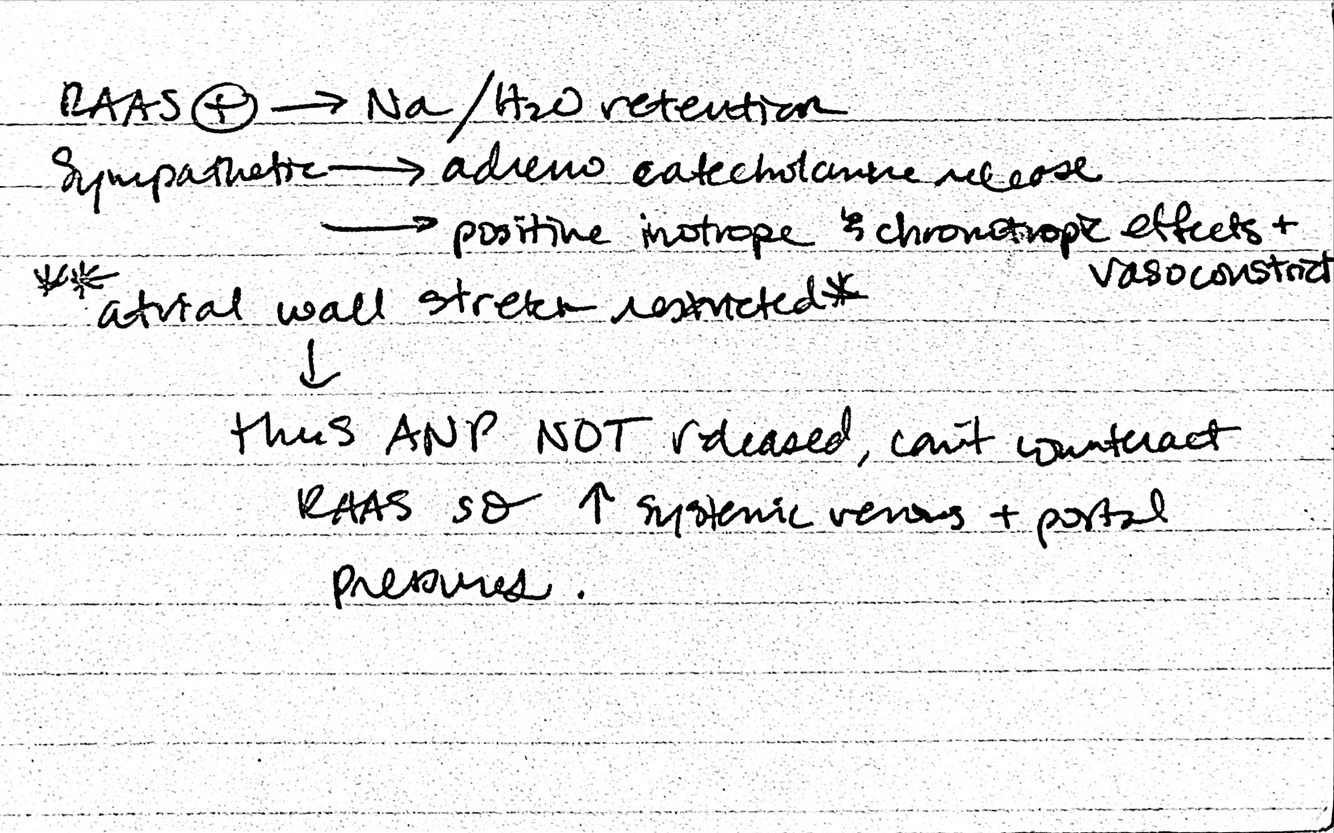 RAAS ⊕ → Na/H2O retention
Sympathetic → adreno catecholamine release
→ positive inotrope & chronotropic effects +
vasoconstrict
** atrial wall stretch restricted *
↓
thus ANP NOT released, can't counteract
RAAS so ↑ systemic venous + portal
pressures.